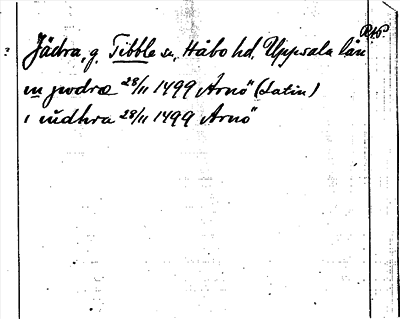 RAP.
Jädra, g. Tibble sn, Håbo hd, Uppsala län
in jwdræ 28/11 1499 Arnö (Latin)
i iudhra 28/11 1499 Arnö